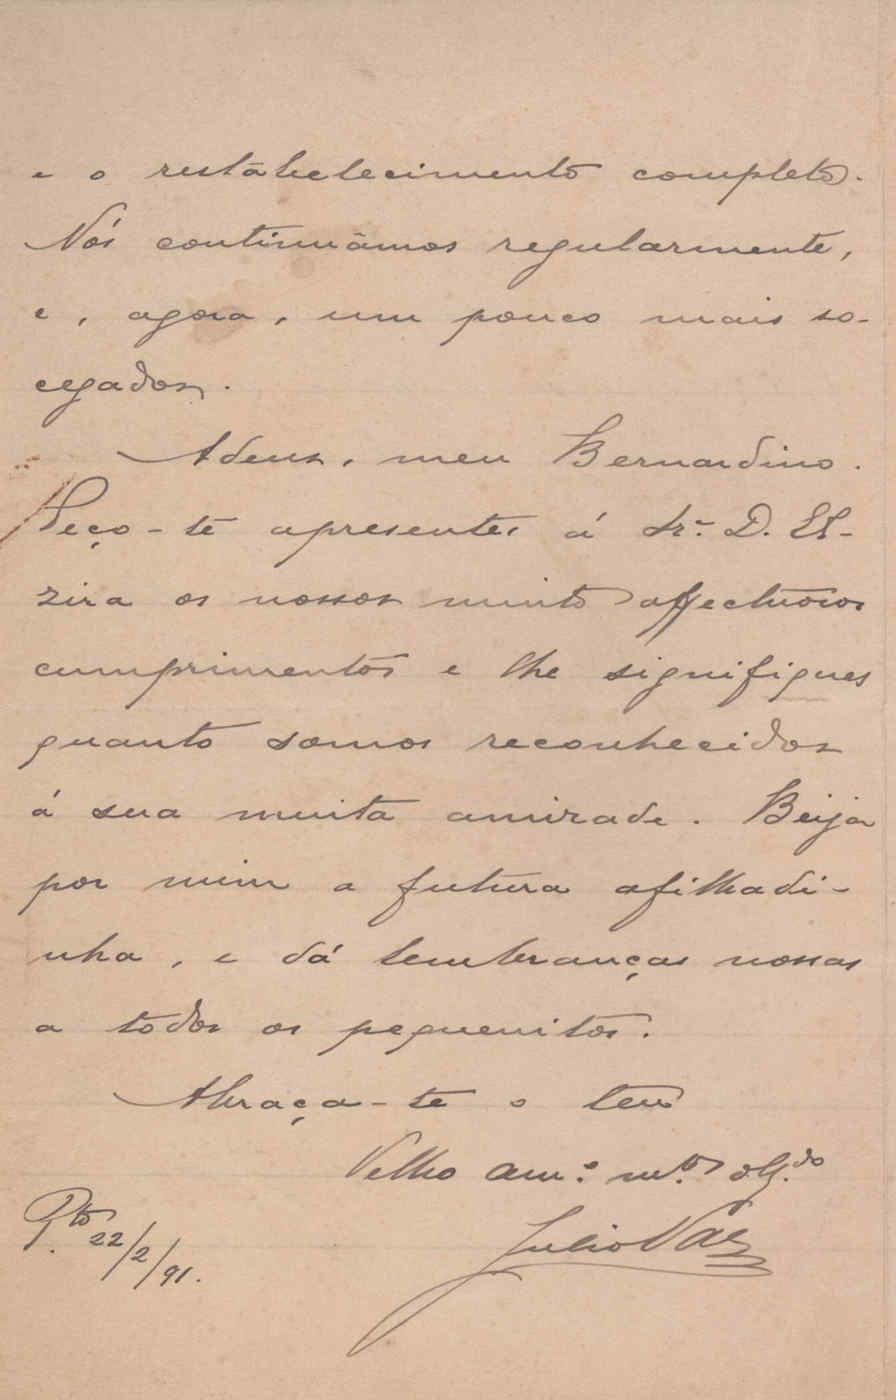 e o restabelecimento completo.
Nós continuâmos regularmente,
e, agora, um pouco mais so-
cegados.
Adeus, meu Bernardino.
Peço-te apresentes á Sr.ª D. El-
zira os nossos muito affectuosos
cumprimentos e lhe signifiques
quanto somos reconhecidos
á sua muita amizade. Beija
por mim a futura afilhadi-
nha, e dá lembranças nossas
a todos os pequenitos.
Abraça-te o teu
Velho am.º m.to obg.do
Julio Vaz
P.to 22/2/91.